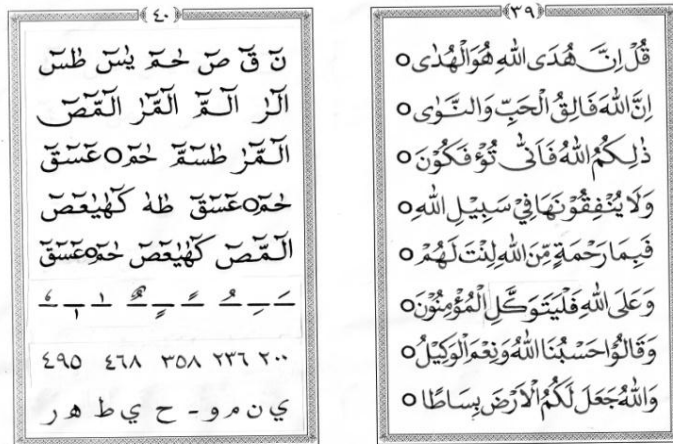 ٣٩
قُلْ اِنَّ هُدَى اللّٰهِ هُوَالْهُدٰى ○
اِنَّ اللّٰهَ فَالِقُ الْحَبِّ وَالنَّوٰى ○
ذٰلِكُمُ اللّٰهُ فَاَنّٰى تُؤْفَكُوْنَ ○
وَلَا يُنْفِقُوْنَهَا فِيْ سَبِيْلِ اللّٰهِ ○
فَبِمَا رَحْمَةٍ مِّنَ اللّٰهِ لِنْتَ لَهُمْ ○
وَعَلَى اللّٰهِ فَلْيَتَوَكَّلِ الْمُؤْمِنُوْنَ ○
وَقَالُوْا حَسْبُنَا اللّٰهُ وَنِعْمَ الْوَكِيْلُ ○
وَاللّٰهُ جَعَلَ لَكُمُ الْاَرْضَ بِسَاطًا ○
٤٠
نٓ قٓ صٓ حٰمٓ يٰسٓ طٰسٓ
الٓرٰ الٓـمّٓ الٓمّٓرٰ الٓمّٓصٓ
الٓمّٓرٰ طٰسٓمّٓ حٰمٓ ○ عٓسٓقٓ
حٰمٓ ○ عٓسٓقٓ طٰهٰ كٓهٰيٰعٓصٓ
الٓمّٓصٓ كٓهٰيٰعٓصٓ حٰمٓ ○ عٓسٓقٓ
٢٠٠ ٢٣٦ ٣٥٨ ٤٦٨ ٤٩٥
ي ن م و - ح ي ط ه ر